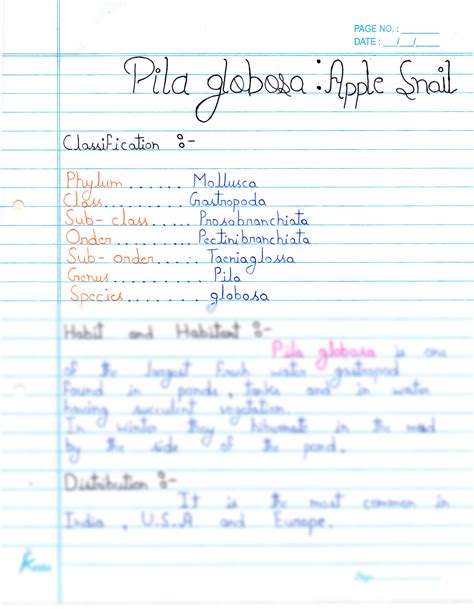 PAGE NO. : ______
DATE : __/__/__
Pila globosa : Apple Snail
Classification :-
Phylum ...... Mollusca
Class ......... Gastropoda
Sub- class ..... Prosobranchiata
Order ......... Pectinibranchiata
Sub- order .... Taeniaglossa
Genus ......... Pila
Species ......... globosa
Habit and Habitant :-
Pila globosa is one
of the largest fresh water gastropod
found in ponds, tanks and in water
having succulent vegetation.
In winter they hibernate in the mud
by the side of the pond.
Distribution :-
It is the most common in
India , U.S.A and Europe.